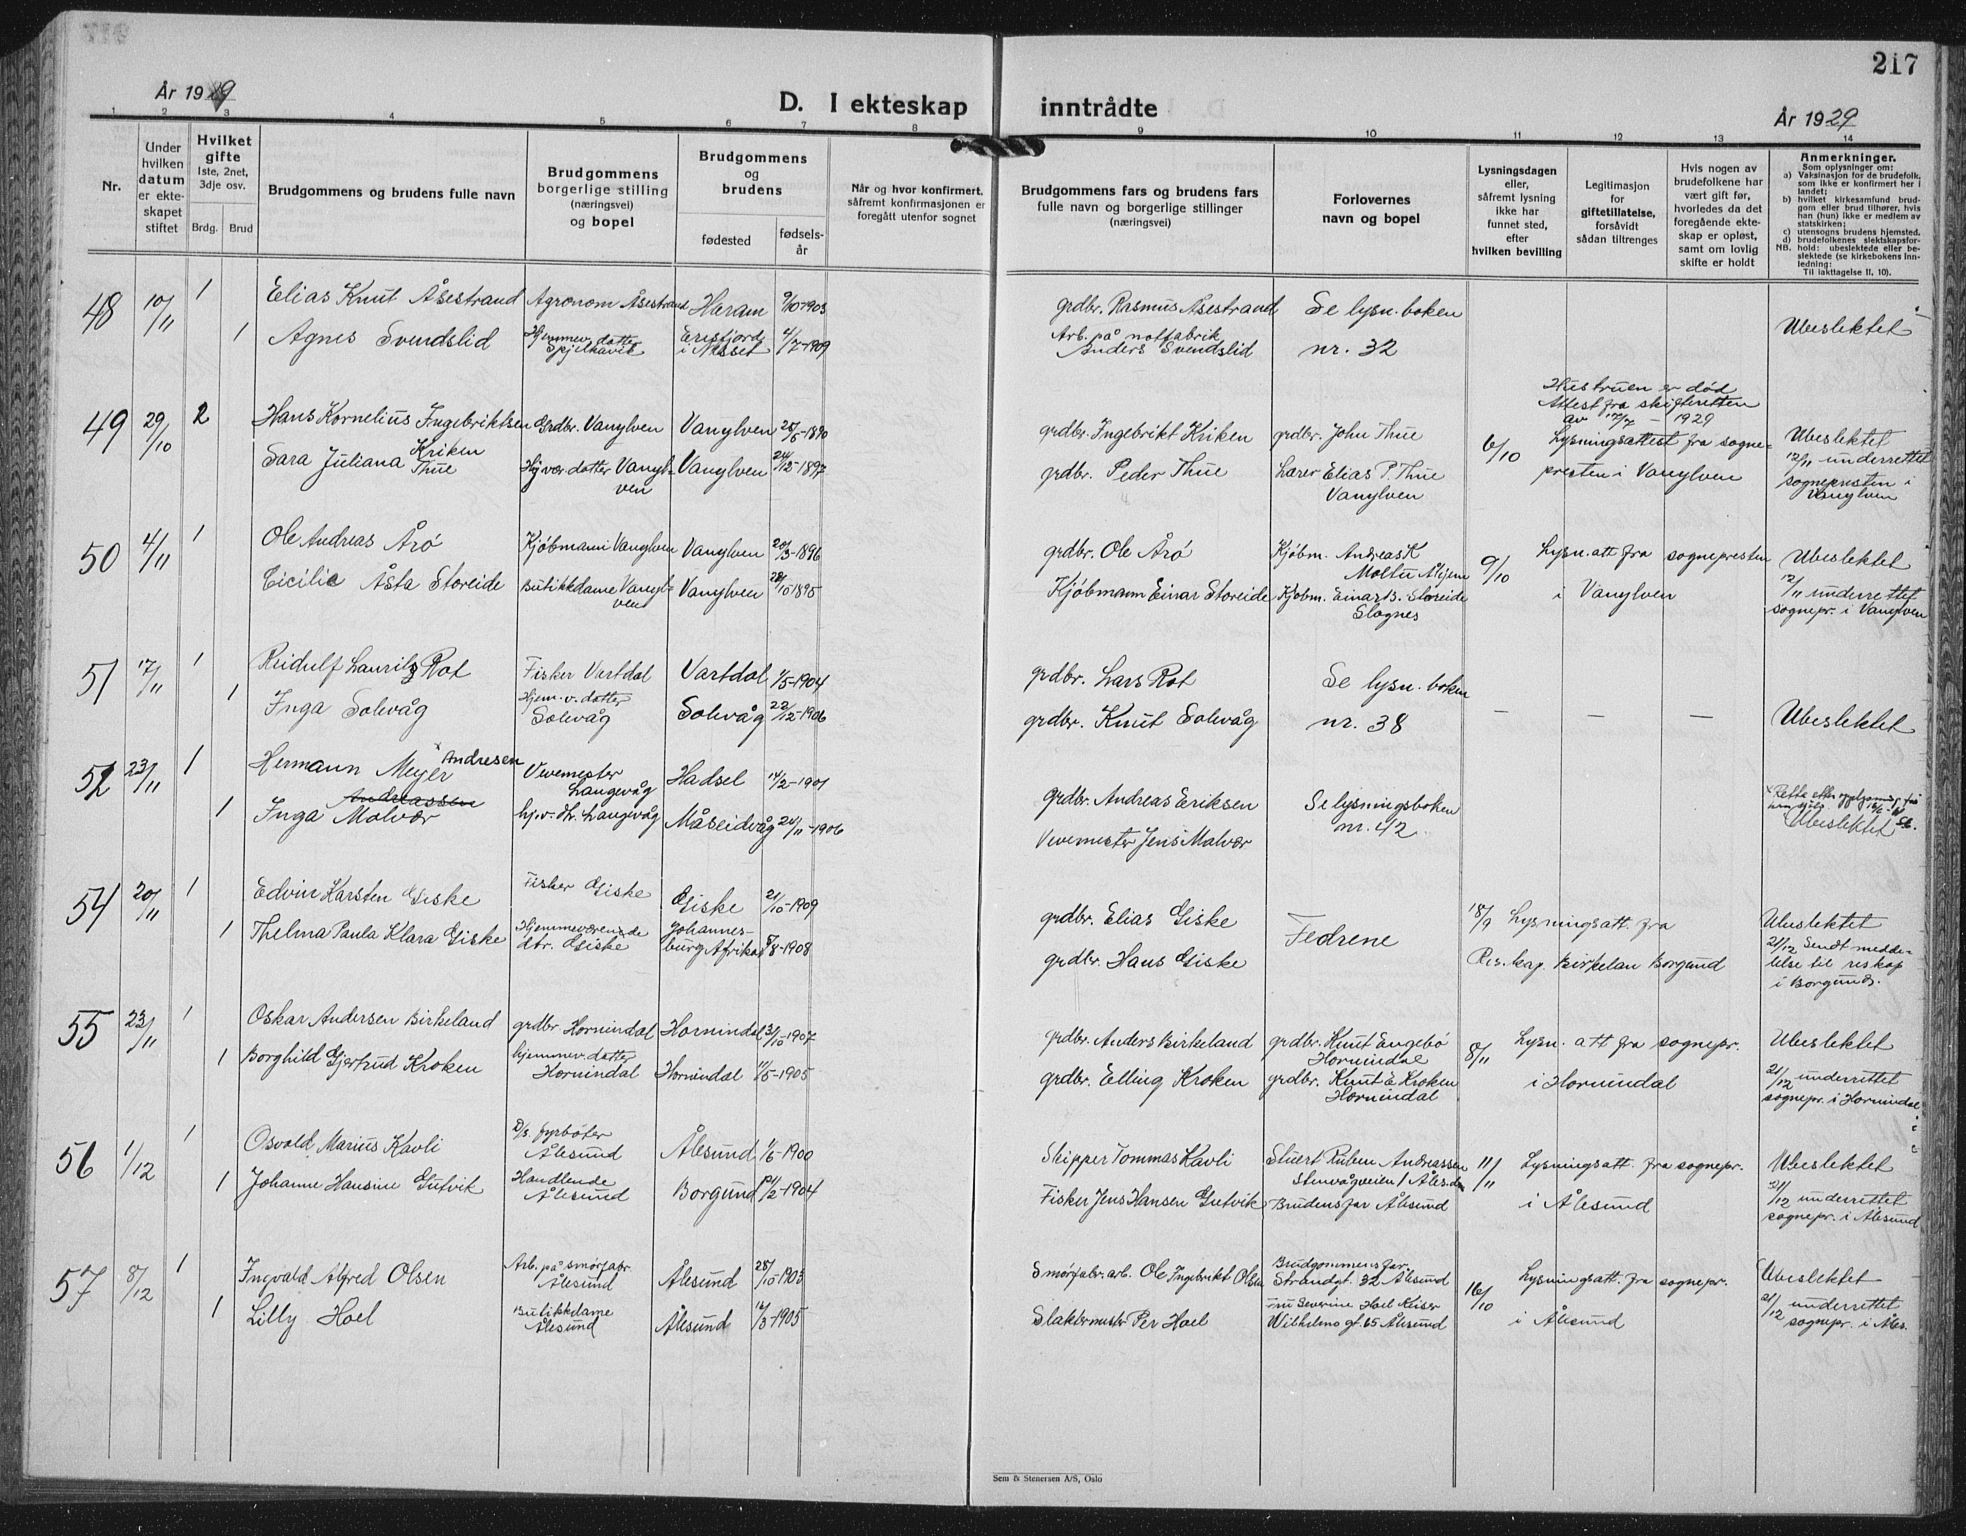 217
År 1929
D. I ekteskap inntrådte
År 1929
1 2 3 4 5 6 7 8 9 10 11 12 13 14
Nr.
Under hvilken datum er ekteskapet stiftet
Hvilket gifte
1ste, 2net, 3dje osv.
Brdg. Brud
Brudgommens og brudens fulle navn
Brudgommens borgerlige stilling (næringsvei) og bopel
Brudgommens og brudens
fødested
fødselsår
Når og hvor konfirmert, såfremt konfirmasjonen er foregått utenfor sognet
Brudgommens fars og brudens fars fulle navn og borgerlige stillinger (næringsvei)
Forlovernes navn og bopel
Lysningsdagen eller, såfremt lysning ikke har funnet sted, efter hvilken bevilling
Legitimasjon for giftetillatelse, forsåvidt sådan tiltrenges
Hvis nogen av brudefolkene har vært gift før, hvorledes da det foregående ekteskap er opløst, samt om lovlig skifte er holdt
Anmerkninger.
Som oplysninger om:
a) Vaksinasjon for de brudefolk, som ikke er konfirmert her i landet;
b) hvilket kirkesamfund brudgom eller brud tilhører, hvis han (hun) ikke er medlem av statskirken;
c) utensogns brudens hjemsted.
d) brudefolkenes slektskapsforhold: ubeslektede eller beslektede (se kirkebokens Innledning:
NB.
Til iakttagelse II, 10).
48 10/11 1 Elias Knut Åsestrand Agronom Åsestrand Haram 9/10-1903 grdbr. Rasmus Åsestrand Se lysn. boken
1 Agnes Svendslid Hjemmev. datter Spjelkavik Eresfjord i Nesset 4/7-1909 Arb. på notfabrik Anders Svendslid nr. 32 Ubeslektet
49 29/10 2 Hans Kornelius Ingebriktsen Kriken Grdbr. Vanylven Vanylven 25/5-1890 grdbr. Ingebrikt Kriken grdbr. John Thue 6/10 Hustruen er død Attest fra skifteretten av 17/7 - 1929
Sara Juliana Thue Hjvær. datter Vanylven Vanylven 24/12-1897 grdbr. Peder Thue Lærer Elias P. Thue Vanylven Lysningsattest fra sognepresten i Vanylven Ubeslektet 12/11 underrettet sognepresten i Vanylven
50 4/11 1 Ole Andreas Årö Kjøbmann Vanylven Vanylven 20/3-1896 grdbr. Ole Årö Kjøbm. Andreas K Moltu 9/10 Lysn. att fra sognepresten
Cicilie Åsta Storeide Butikkdame Vanylven Vanylven 28/10-1895 Kjøbmann Einar Storeide Kjøbm. Einar B. Storeide Slagnes i Vanylven Ubeslektet 12/11 underrettet sognepr. i Vanylven
51 17/11 1 Reidulf Lauritz Rot Fisker Vartdal Vartdal 1/5-1904 grdbr. Lars Rot Se lysn. boken
1 Inga Solevåg Hjem. v. datter Solevåg Solevåg 22/12-1906 grdbr. Knut Solevåg nr. 38 — — — Ubeslektet
52 23/11 1 Hermann Meyer x Andresen Andreassen Vevemester Langevåg Hadsel 14/2-1901 grdbr. Andreas Eriksen Se lysningsboken
1 Inga Malvær hj.v. dtr. Langevåg Måseidvåg 24/11-1906 Vevemester Jens Malvær nr. 42 x Rettet efter Ubeslektet
54 20/11 1 Edvin Karsten Giske Fisker Giske Giske 21/10-1909 grdbr. Elias Giske Fedrene 18/9 Lysningsatt. fra
1 Thelma Paula Klara Giske Hjemmeværende dtr. Giske Johannesburg Afrika 5/8-1908 grdbr. Hans Giske Res. kap. Birkelan Borgund Ubeslektet 21/12 Sendt meddelelse til reskap i Borgund.
55 23/11 1 Oskar Andersen Birkeland grdbr Hornindal Hornindal 31/10-1907 grdbr. Anders Birkeland grdbr. Knut Engebø Hornindal 8/11 Lysn. att fra sognepr.
1 Borghild Gjertrud Kroken hjemmev. datter Hornindal Hornindal 11/5-1905 grdbr. Elling Kroken grdbr. Knut E Kroken Hornindal i Hornindal Ubeslektet 21/12 underrettet sognepr. i Hornindal
56 1/12 1 Osvald Marius Kavli D/s. fyrbøter Ålesund Ålesund 1/6-1900 Skipper Tommas Kavli Stuert Ruben Andreassen 11/11 Lysningsatt. fra sognepr.
1 Johanne Hansine Gutvik Handlende Ålesund Borgund 12/2-1904 Fisker Jens Hansen Gutvik Brudens far Ålesund i Ålesund Ubeslektet 21/12 underrettet sognepr. i Ålesund
57 8/12 1 Ingvald Alfred Olsen Arb. på smørfabr. Ålesund Ålesund 28/10-1903 Smørfabr. arb. Ole Ingebrikt Olsen Brudgommens far Strandgt. 32 Ålesund 16/10 Lysningsatt. fra sognepr.
1 Lilly Hoel Butikkdame Ålesund Ålesund 12/3-1905 Slaktermester Per Hoel fru Severine Hoel Keiser Wilhelms gt. 65 Ålesund i Ålesund Ubeslektet 21/12 underrettet sognepr. i Åles.
Sem & Stenersen A/S, Oslo